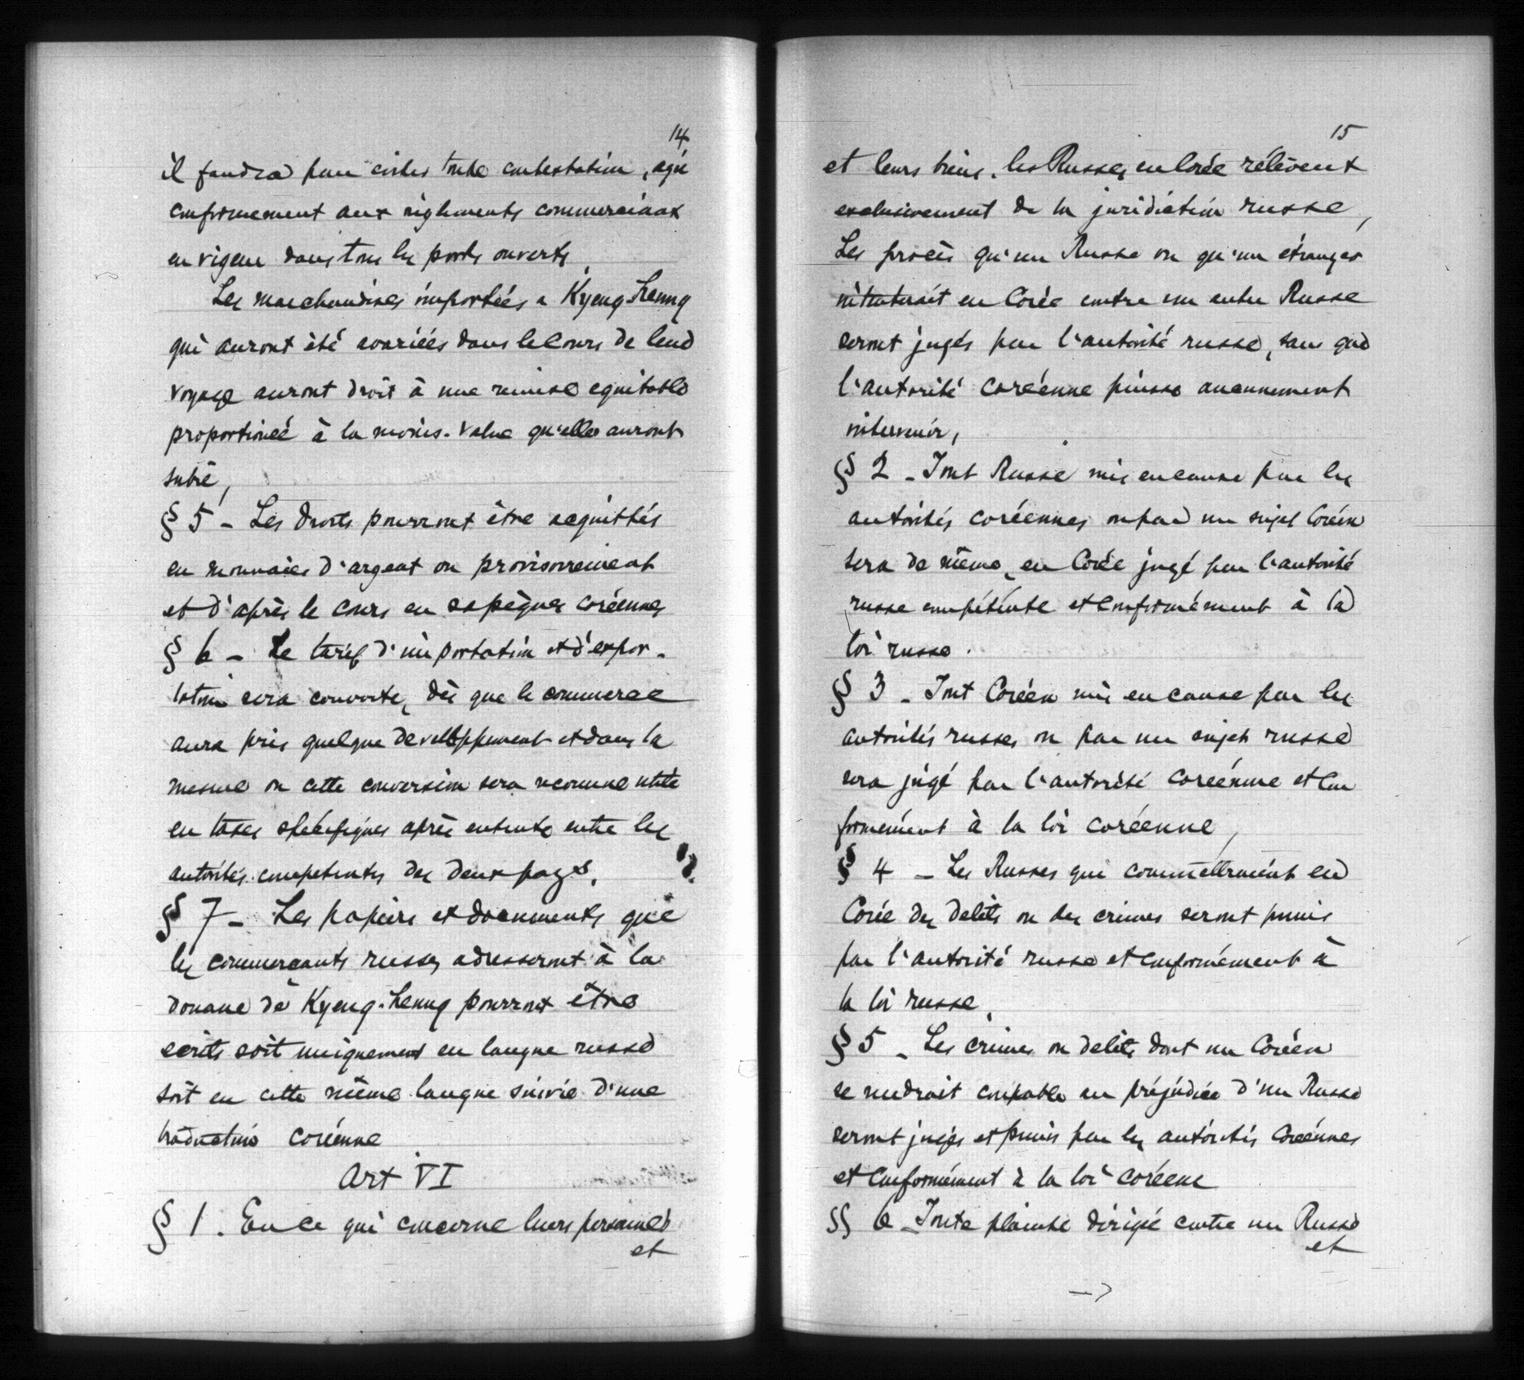 14
il faudra pour éviter toute contestation, agir
conformement aux règlements commerciaux
en vigeur dans tous les ports ouverts.
Les marchandises importées a Kyeng-Heung
qui auront été avariéés dans le cours de leur
voyage auront droit à une remise equitable
proportionéé à la moins-value qu'elles auront
subie,
§ 5 - Les droits pourront être acquittés
en monnaies d'argent ou provisoirement
et d'après le cours en sapèques coréennes
§ 6 - Le tarif d'importation et d'expor-
tation sera converti, dès que le commerce
aura pris quelque developpement et dans la
mesure ou cette conversion sera reconnue utile
en taxes spécifiques après entente entre les
autorités competentes des deux pays.
§ 7 - Les papiers et documents que
les commerçants russes adresseront à la
douane de Kyeng-Heung pourront être
ecrits soit uniquement en langue russe
soit en cette même langue suivie d'une
traduction coréenne
Art VI
§ 1. En ce qui concerne leurs personnes
et
15
et leurs biens, les Russes en Corée rélèvent
exclusivement de la juridiction russe,
Les procès qu'un Russe ou qu'un étranger
intenterait en Corée contre un autre Russe
seront jugés par l'autorité russe, sans que
l'autorité coréenne puisse aucunement
intervenir,
§ 2 - Tout Russe mis en cause par les
autorités coréennes ou par un sujet Coréen
sera de même, en Corée jugé par l'autorité
russe compétente et conformément à la
loi russe.
§ 3 - Tout Coréen mis en cause par les
autorités russes ou par un sujet russe
sera jugé par l'autorité coréenne et con
formément à la loi coréenne,
§ 4 - Les Russes qui commettraient en
Corée des delits ou des crimes seront punis
par l'autorité russe et conformément à
la loi russe,
§ 5 - Les crimes ou delits dont un Coréen
se rendrait coupable au préjudice d'un Russe
seront jugés et punis par les autorités Coréennes
et conformément à la loi coréene
§§ 6 - Toute plainte dirigée contre un Russe
et